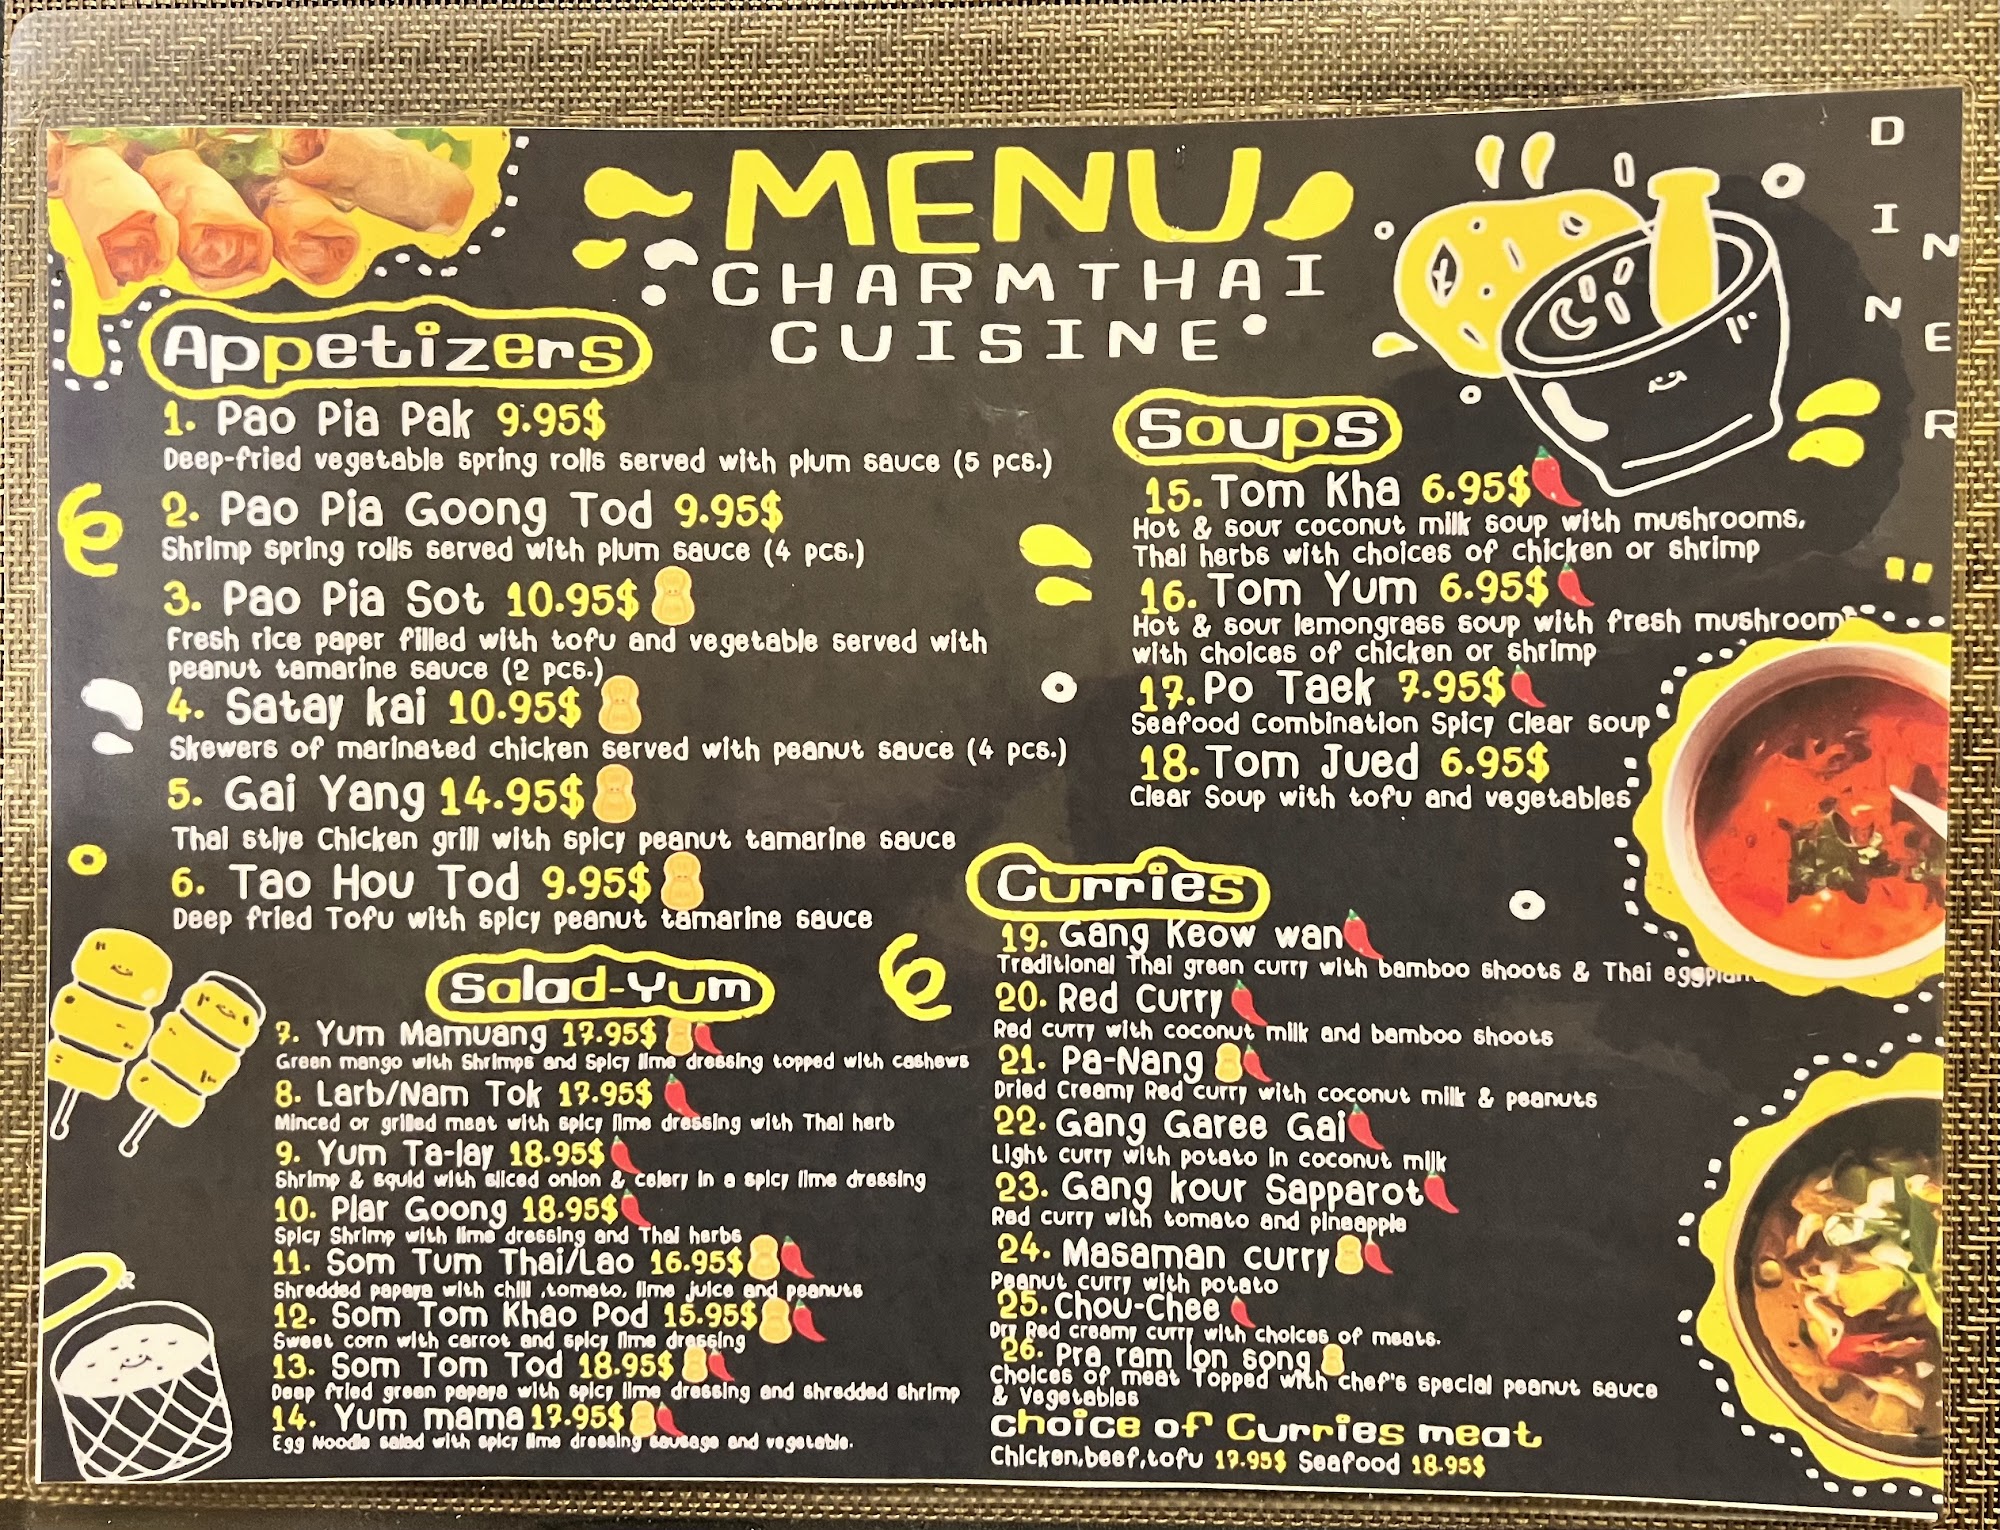 MENU
CHARMTHAI
CUISINE
DINNER
Appetizers
1. Pao Pia Pak 9.95$
Deep-fried vegetable spring rolls served with plum sauce (5 pcs.)
2. Pao Pia Goong Tod 9.95$
Shrimp spring rolls served with plum sauce (4 pcs.)
3. Pao Pia Sot 10.95$
Fresh rice paper filled with tofu and vegetable served with
peanut tamarine sauce (2 pcs.)
4. Satay kai 10.95$
Skewers of marinated chicken served with peanut sauce (4 pcs.)
5. Gai Yang 14.95$
Thai stlye Chicken grill with spicy peanut tamarine sauce
6. Tao Hou Tod 9.95$
Deep fried Tofu with spicy peanut tamarine sauce
Salad-Yum
7. Yum Mamuang 17.95$
Green mango with Shrimps and Spicy lime dressing topped with cashews
8. Larb/Nam Tok 17.95$
Minced or grilled meat with spicy lime dressing with Thai herb
9. Yum Ta-lay 18.95$
Shrimp & squid with sliced onion & celery in a spicy lime dressing
10. Plar Goong 18.95$
Spicy Shrimp with lime dressing and Thai herbs
11. Som Tum Thai/Lao 16.95$
Shredded papaya with chili ,tomato, lime juice and peanuts
12. Som Tom Khao Pod 15.95$
Sweet corn with carrot and spicy lime dressing
13. Som Tom Tod 18.95$
Deep fried green papaya with spicy lime dressing and shredded shrimp
14. Yum mama 17.95$
Egg Noodle salad with spicy lime dressing sausage and vegetable.
Soups
15. Tom Kha 6.95$
Hot & sour coconut milk soup with mushrooms,
Thai herbs with choices of chicken or shrimp
16. Tom Yum 6.95$
Hot & sour lemongrass soup with fresh mushrooms
with choices of chicken or shrimp
17. Po Taek 7.95$
Seafood Combination Spicy Clear soup
18. Tom Jued 6.95$
Clear Soup with tofu and vegetables
Curries
19. Gang Keow wan
Traditional Thai green curry with bamboo shoots & Thai eggplant
20. Red Curry
Red curry with coconut milk and bamboo shoots
21. Pa-Nang
Dried Creamy Red curry with coconut milk & peanuts
22. Gang Garee Gai
Light curry with potato in coconut milk
23. Gang kour Sapparot
Red curry with tomato and pineapple
24. Masaman curry
Peanut curry with potato
25. Chou-Chee
Dry Red creamy curry with choices of meats.
26. Pra ram lon song
Choices of meat Topped with chef's special peanut sauce
& Vegetables
choice of Curries meat
Chicken,beef,tofu 17.95$ Seafood 18.95$